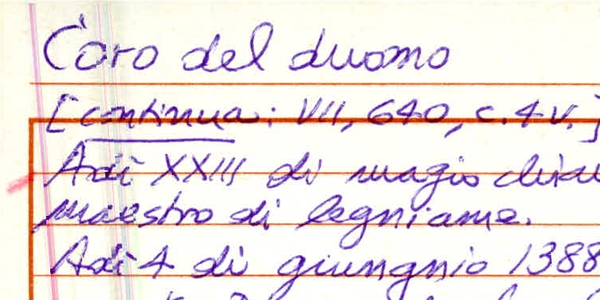 Coro del duomo
[continua: VII, 640, c.4v.]
Adì XXIII di magio
maestro di legniame.
Adì 4 di giungnio 1388